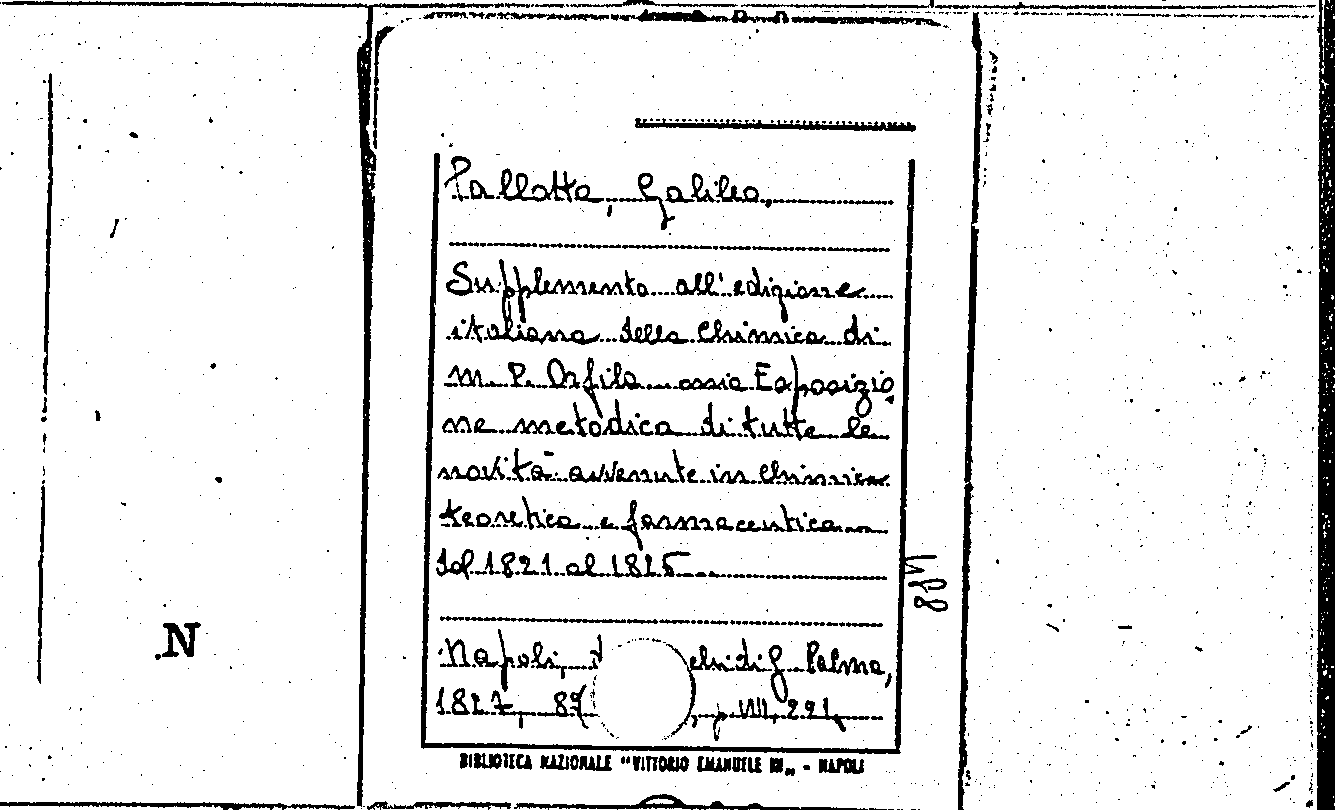 Pallotta, Galileo,
Supplemento all'edizione
italiana della Chimica di
M. P. Orfila ossia Esposizio
ne metodica di tutte le
novità avvenute in chimica
teoretica e farmaceutica
dal 1821 al 1825
Napoli, di G. Palma,
1827, 8° , p. VIII, 221,
BIBLIOTECA NAZIONALE "VITTORIO EMANUELE III„ - NAPOLI
.N